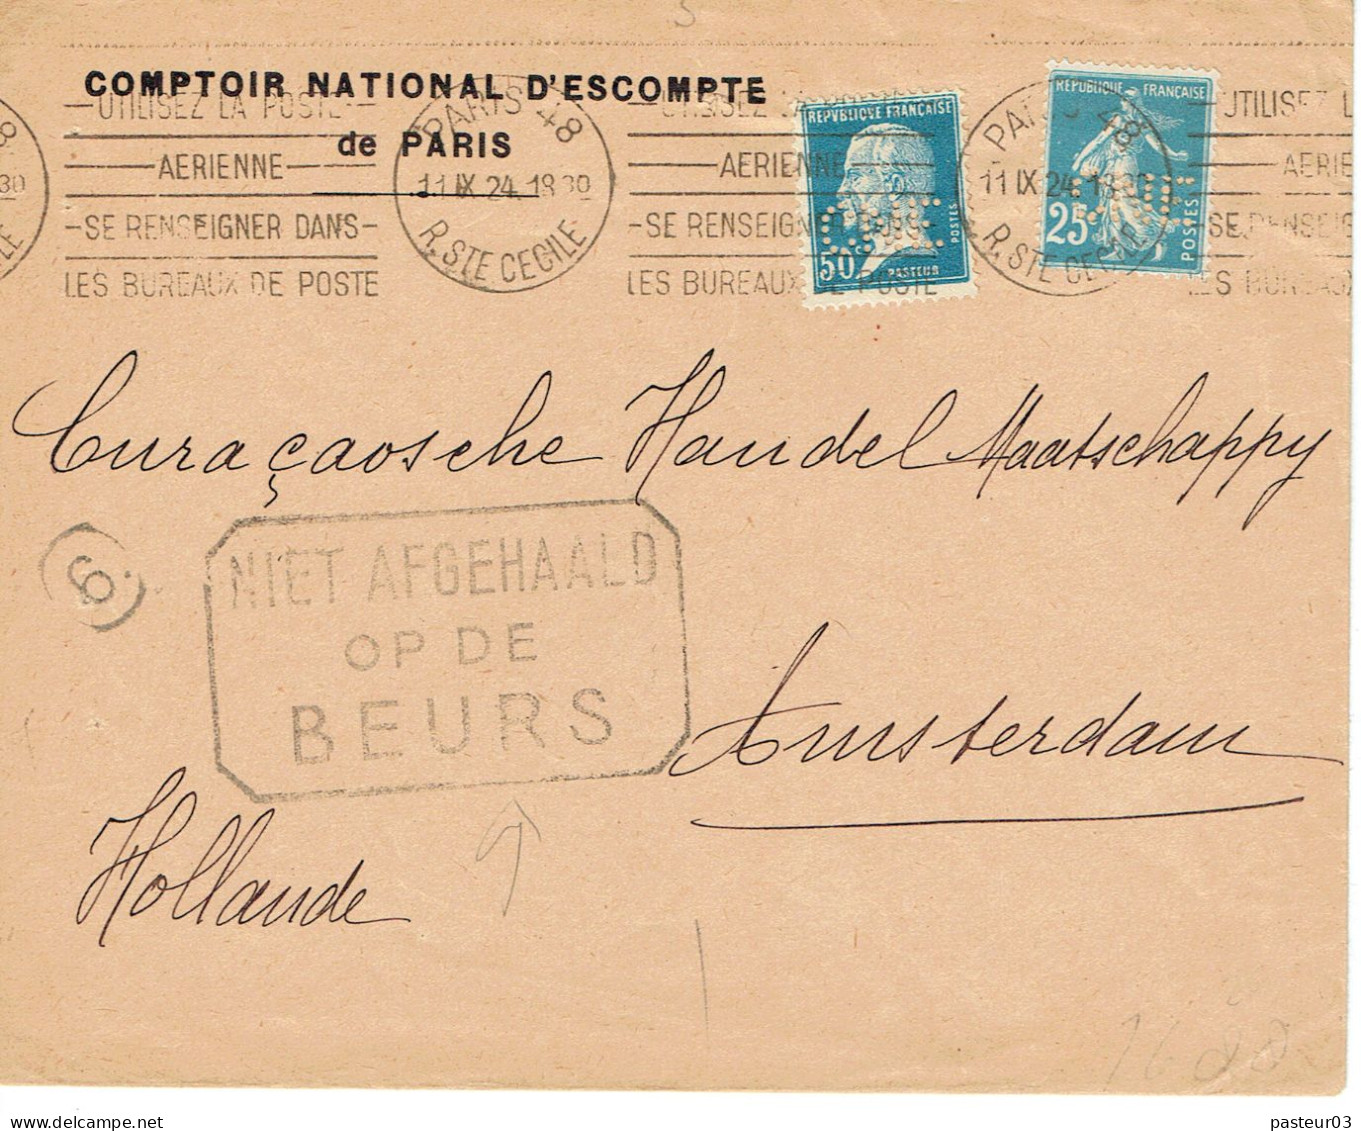 COMPTOIR NATIONAL D'ESCOMPTE
de PARIS
UTILISEZ LA POSTE
AERIENNE
SE RENSEIGNER DANS
LES BUREAUX DE POSTE
PARIS 48
11 IX 24 18 30
R. STE CECILE
AERIENNE
SE RENSEIGN
LES BUREAUX DE POSTE
REPVBLIQVE FRANÇAISE
50c
POSTES
PASTEUR
PARIS 48
11 IX 24 18 30
R. STE CECILE
REPUBLIQUE FRANÇAISE
25c
POSTES
UTILISEZ L
AERIE
SE RENSEI
LES BUREAUX
8
30
CILE
Curaçaosche Handel Maatschappy
6
NIET AFGEHAALD
OP DE
BEURS
Amsterdam
Hollande
pasteur03